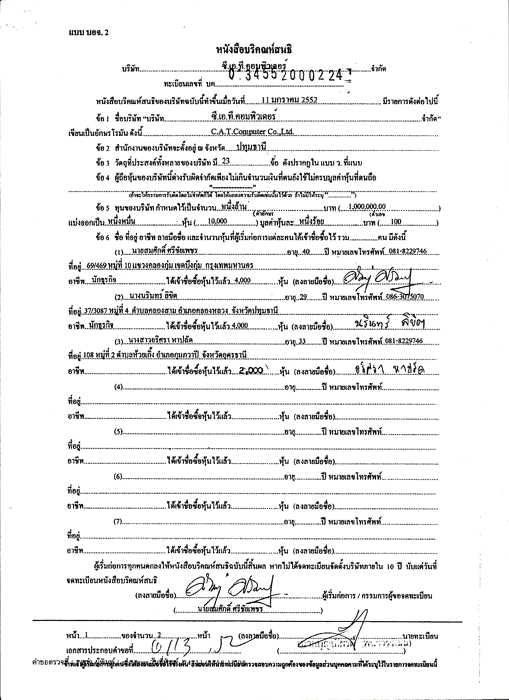 แบบ บอจ. 2
หนังสือบริคณห์สนธิ
บริษัท ซี.เอ.ที.คอมพิวเตอร์ จำกัด
ทะเบียนเลขที่ บค. 0 3 4 5 5 2 0 0 0 2 2 4
หนังสือบริคณห์สนธิของบริษัทฉบับนี้ทำขึ้นเมื่อวันที่ 11 มกราคม 2552 มีรายการดังต่อไปนี้
ข้อ 1 ชื่อบริษัท "บริษัท ซี.เอ.ที.คอมพิวเตอร์ จำกัด"
เขียนเป็นอักษรโรมัน ดังนี้ C.A.T.Computer Co.,Ltd.
ข้อ 2 สำนักงานของบริษัทจะตั้งอยู่ ณ จังหวัด ปทุมธานี
ข้อ 3 วัตถุที่ประสงค์ทั้งหลายของบริษัท มี 23 ข้อ ดังปรากฏใน แบบ ว. ที่แนบ
ข้อ 4 ผู้ถือหุ้นของบริษัทนี้ต่างรับผิดจำกัดเพียงไม่เกินจำนวนเงินที่ตนยังใช้ไม่ครบมูลค่าหุ้นที่ตนถือ
ข้อ 5 ทุนของบริษัท กำหนดไว้เป็นจำนวน หนึ่งล้าน บาท ( 1,000,000.00 )
(ตัวอักษร) (ตัวเลข)
แบ่งออกเป็น หนึ่งหมื่น หุ้น ( 10,000 ) มูลค่าหุ้นละ หนึ่งร้อย บาท ( 100 )
ข้อ 6 ชื่อ ที่อยู่ อาชีพ ลายมือชื่อ และจำนวนหุ้นที่ผู้เริ่มก่อการแต่ละคนได้เข้าชื่อซื้อไว้ รวม คน มีดังนี้
(1) นายสมศักดิ์ ศรีชัยเพชร อายุ 40 ปี หมายเลขโทรศัพท์ 081-8229746
ที่อยู่ 69/469 หมู่ที่ 10 แขวงคลองกุ่ม เขตบึงกุ่ม กรุงเทพมหานคร
อาชีพ นักธุรกิจ ได้เข้าชื่อซื้อหุ้นไว้แล้ว 4,000 หุ้น (ลงลายมือชื่อ)
(2) นางนรินทร์ ลิขิต อายุ 29 ปี หมายเลขโทรศัพท์ 086-3075070
ที่อยู่ 37/3087 หมู่ที่ 4 ตำบลคลองสาม อำเภอคลองหลวง จังหวัดปทุมธานี
อาชีพ นักธุรกิจ ได้เข้าชื่อซื้อหุ้นไว้แล้ว 4,000 หุ้น (ลงลายมือชื่อ) นรินทร์ ลิขิต
(3) นางสาวอริศรา หาปลัด อายุ 33 ปี หมายเลขโทรศัพท์ 081-8229746
ที่อยู่ 108 หมู่ที่ 2 ตำบลห้วยเกิ้ง อำเภอกุมภวาปี จังหวัดอุดรธานี
อาชีพ ได้เข้าชื่อซื้อหุ้นไว้แล้ว 2,000 หุ้น (ลงลายมือชื่อ)
(4) อายุ ปี หมายเลขโทรศัพท์
ที่อยู่
อาชีพ ได้เข้าชื่อซื้อหุ้นไว้แล้ว หุ้น (ลงลายมือชื่อ)
(5) อายุ ปี หมายเลขโทรศัพท์
ที่อยู่
อาชีพ ได้เข้าชื่อซื้อหุ้นไว้แล้ว หุ้น (ลงลายมือชื่อ)
(6) อายุ ปี หมายเลขโทรศัพท์
ที่อยู่
อาชีพ ได้เข้าชื่อซื้อหุ้นไว้แล้ว หุ้น (ลงลายมือชื่อ)
(7) อายุ ปี หมายเลขโทรศัพท์
ที่อยู่
อาชีพ ได้เข้าชื่อซื้อหุ้นไว้แล้ว หุ้น (ลงลายมือชื่อ)
ผู้เริ่มก่อการทุกคนตกลงให้หนังสือบริคณห์สนธิฉบับนี้สิ้นผล หากไม่ได้จดทะเบียนจัดตั้งบริษัทภายใน 10 ปี นับแต่วันที่
จดทะเบียนหนังสือบริคณห์สนธิ
(ลงลายมือชื่อ) ผู้เริ่มก่อการ / กรรมการผู้ขอจดทะเบียน
( นายสมศักดิ์ ศรีชัยเพชร )
หน้า 1 ของจำนวน 2 หน้า (ลงลายมือชื่อ) นายทะเบียน
เอกสารประกอบคำขอที่